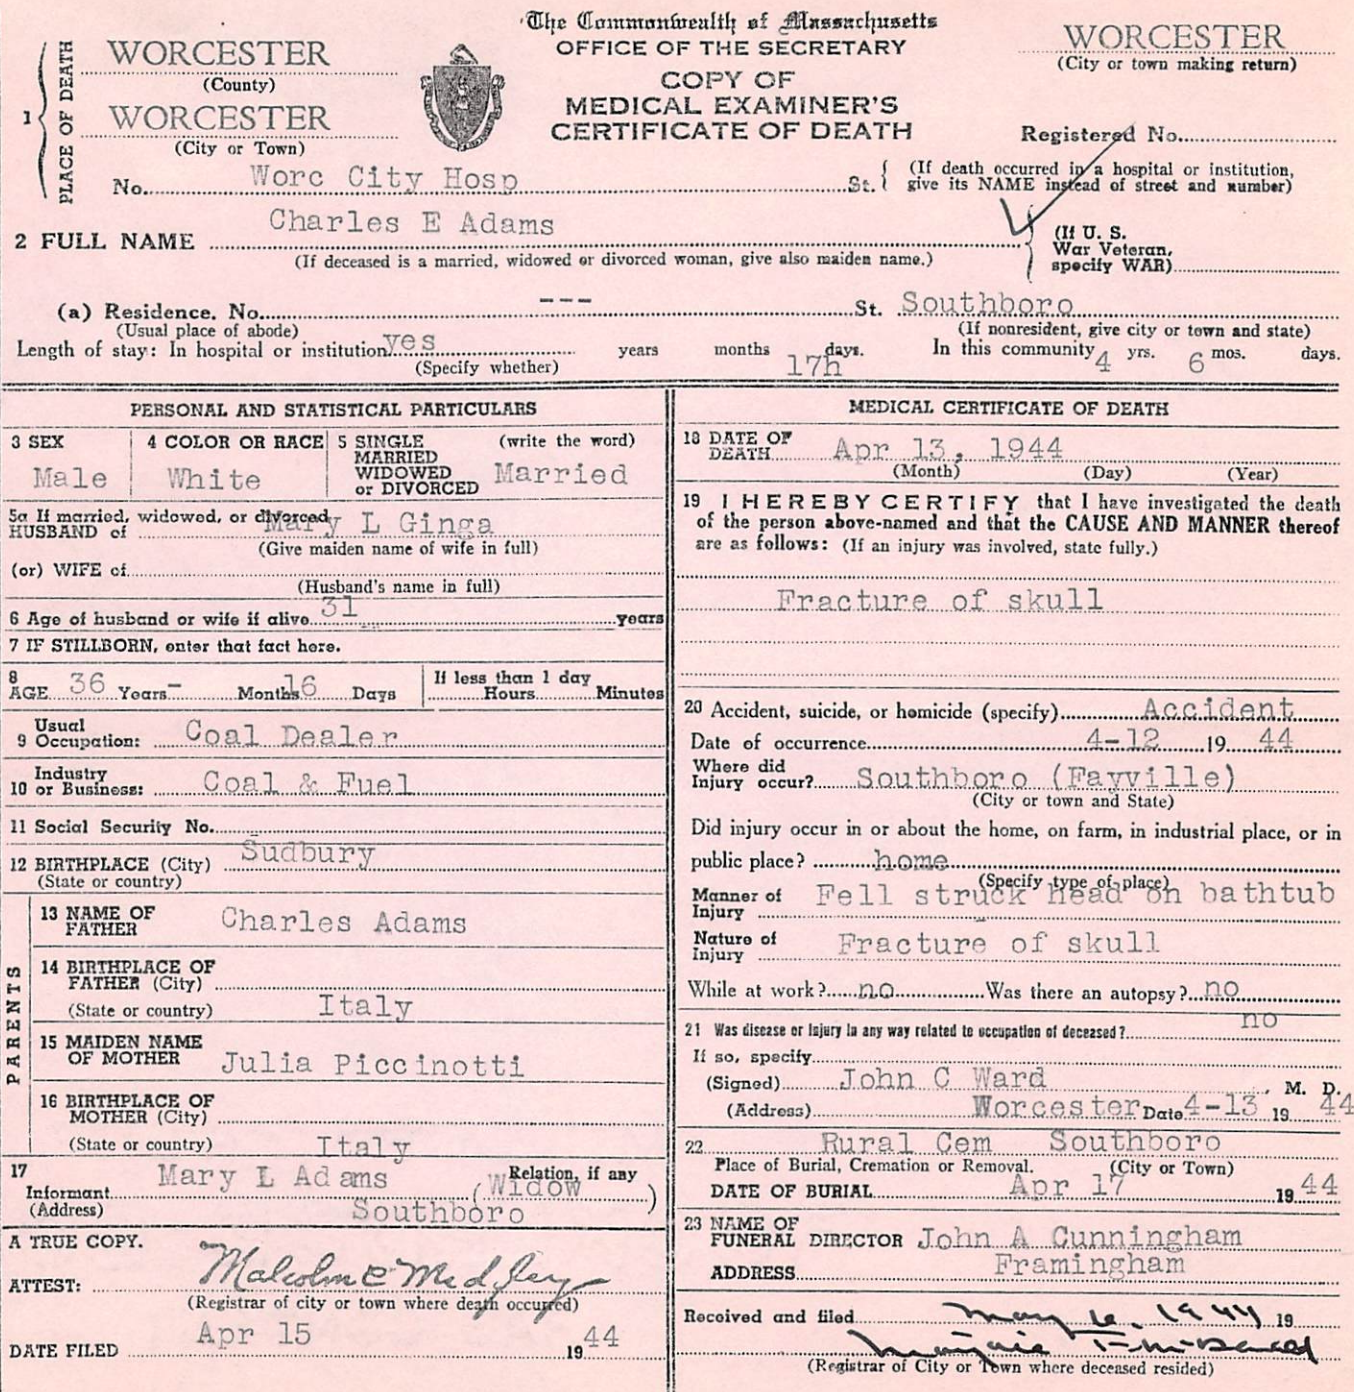 The Commonwealth of Massachusetts
OFFICE OF THE SECRETARY
COPY OF
MEDICAL EXAMINER'S
CERTIFICATE OF DEATH
1 PLACE OF DEATH
WORCESTER
(County)
WORCESTER
(City or Town)
No. Worc City Hosp St. { (If death occurred in a hospital or institution, give its NAME instead of street and number)
WORCESTER
(City or town making return)
Registered No.
2 FULL NAME Charles E Adams
(If deceased is a married, widowed or divorced woman, give also maiden name.)
(If U. S.
War Veteran,
specify WAR)
(a) Residence. No. --- St. Southboro
(Usual place of abode) (If nonresident, give city or town and state)
Length of stay: In hospital or institution yes years months 17h days. In this community 4 yrs. 6 mos. days.
(Specify whether)
PERSONAL AND STATISTICAL PARTICULARS
3 SEX
Male
4 COLOR OR RACE
White
5 SINGLE (write the word)
MARRIED
WIDOWED
or DIVORCED Married
5a If married, widowed, or divorced
HUSBAND of Mary L Ginga
(Give maiden name of wife in full)
(or) WIFE of
(Husband's name in full)
6 Age of husband or wife if alive 31 years
7 IF STILLBORN, enter that fact here.
8
AGE 36 Years - Months 16 Days
If less than 1 day
Hours Minutes
9 Usual
Occupation: Coal Dealer
10 Industry
or Business: Coal & Fuel
11 Social Security No.
12 BIRTHPLACE (City) Sudbury
(State or country)
PARENTS
13 NAME OF
FATHER Charles Adams
14 BIRTHPLACE OF
FATHER (City)
(State or country) Italy
15 MAIDEN NAME
OF MOTHER Julia Piccinotti
16 BIRTHPLACE OF
MOTHER (City)
(State or country) Italy
17
Informant Mary L Adams Relation, if any (Widow)
(Address) Southboro
A TRUE COPY.
ATTEST: Malcolm C Midgley
(Registrar of city or town where death occurred)
DATE FILED Apr 15 19 44
MEDICAL CERTIFICATE OF DEATH
18 DATE OF
DEATH Apr 13, 1944
(Month) (Day) (Year)
19 I HEREBY CERTIFY that I have investigated the death
of the person above-named and that the CAUSE AND MANNER thereof
are as follows: (If an injury was involved, state fully.)
Fracture of skull
20 Accident, suicide, or homicide (specify) Accident
Date of occurrence 4-12 19 44
Where did
Injury occur? Southboro (Fayville)
(City or town and State)
Did injury occur in or about the home, on farm, in industrial place, or in
public place? home
(Specify type of place)
Manner of
Injury Fell struck head on bathtub
Nature of
Injury Fracture of skull
While at work? no Was there an autopsy? no
21 Was disease or injury in any way related to occupation of deceased? no
If so, specify
(Signed) John C Ward , M. D.
(Address) Worcester Date 4-13 19 44
22 Rural Cem Southboro
Place of Burial, Cremation or Removal. (City or Town)
DATE OF BURIAL Apr 17 19 44
23 NAME OF
FUNERAL DIRECTOR John A Cunningham
ADDRESS Framingham
Received and filed May 6, 1944 19
(Registrar of City or Town where deceased resided)